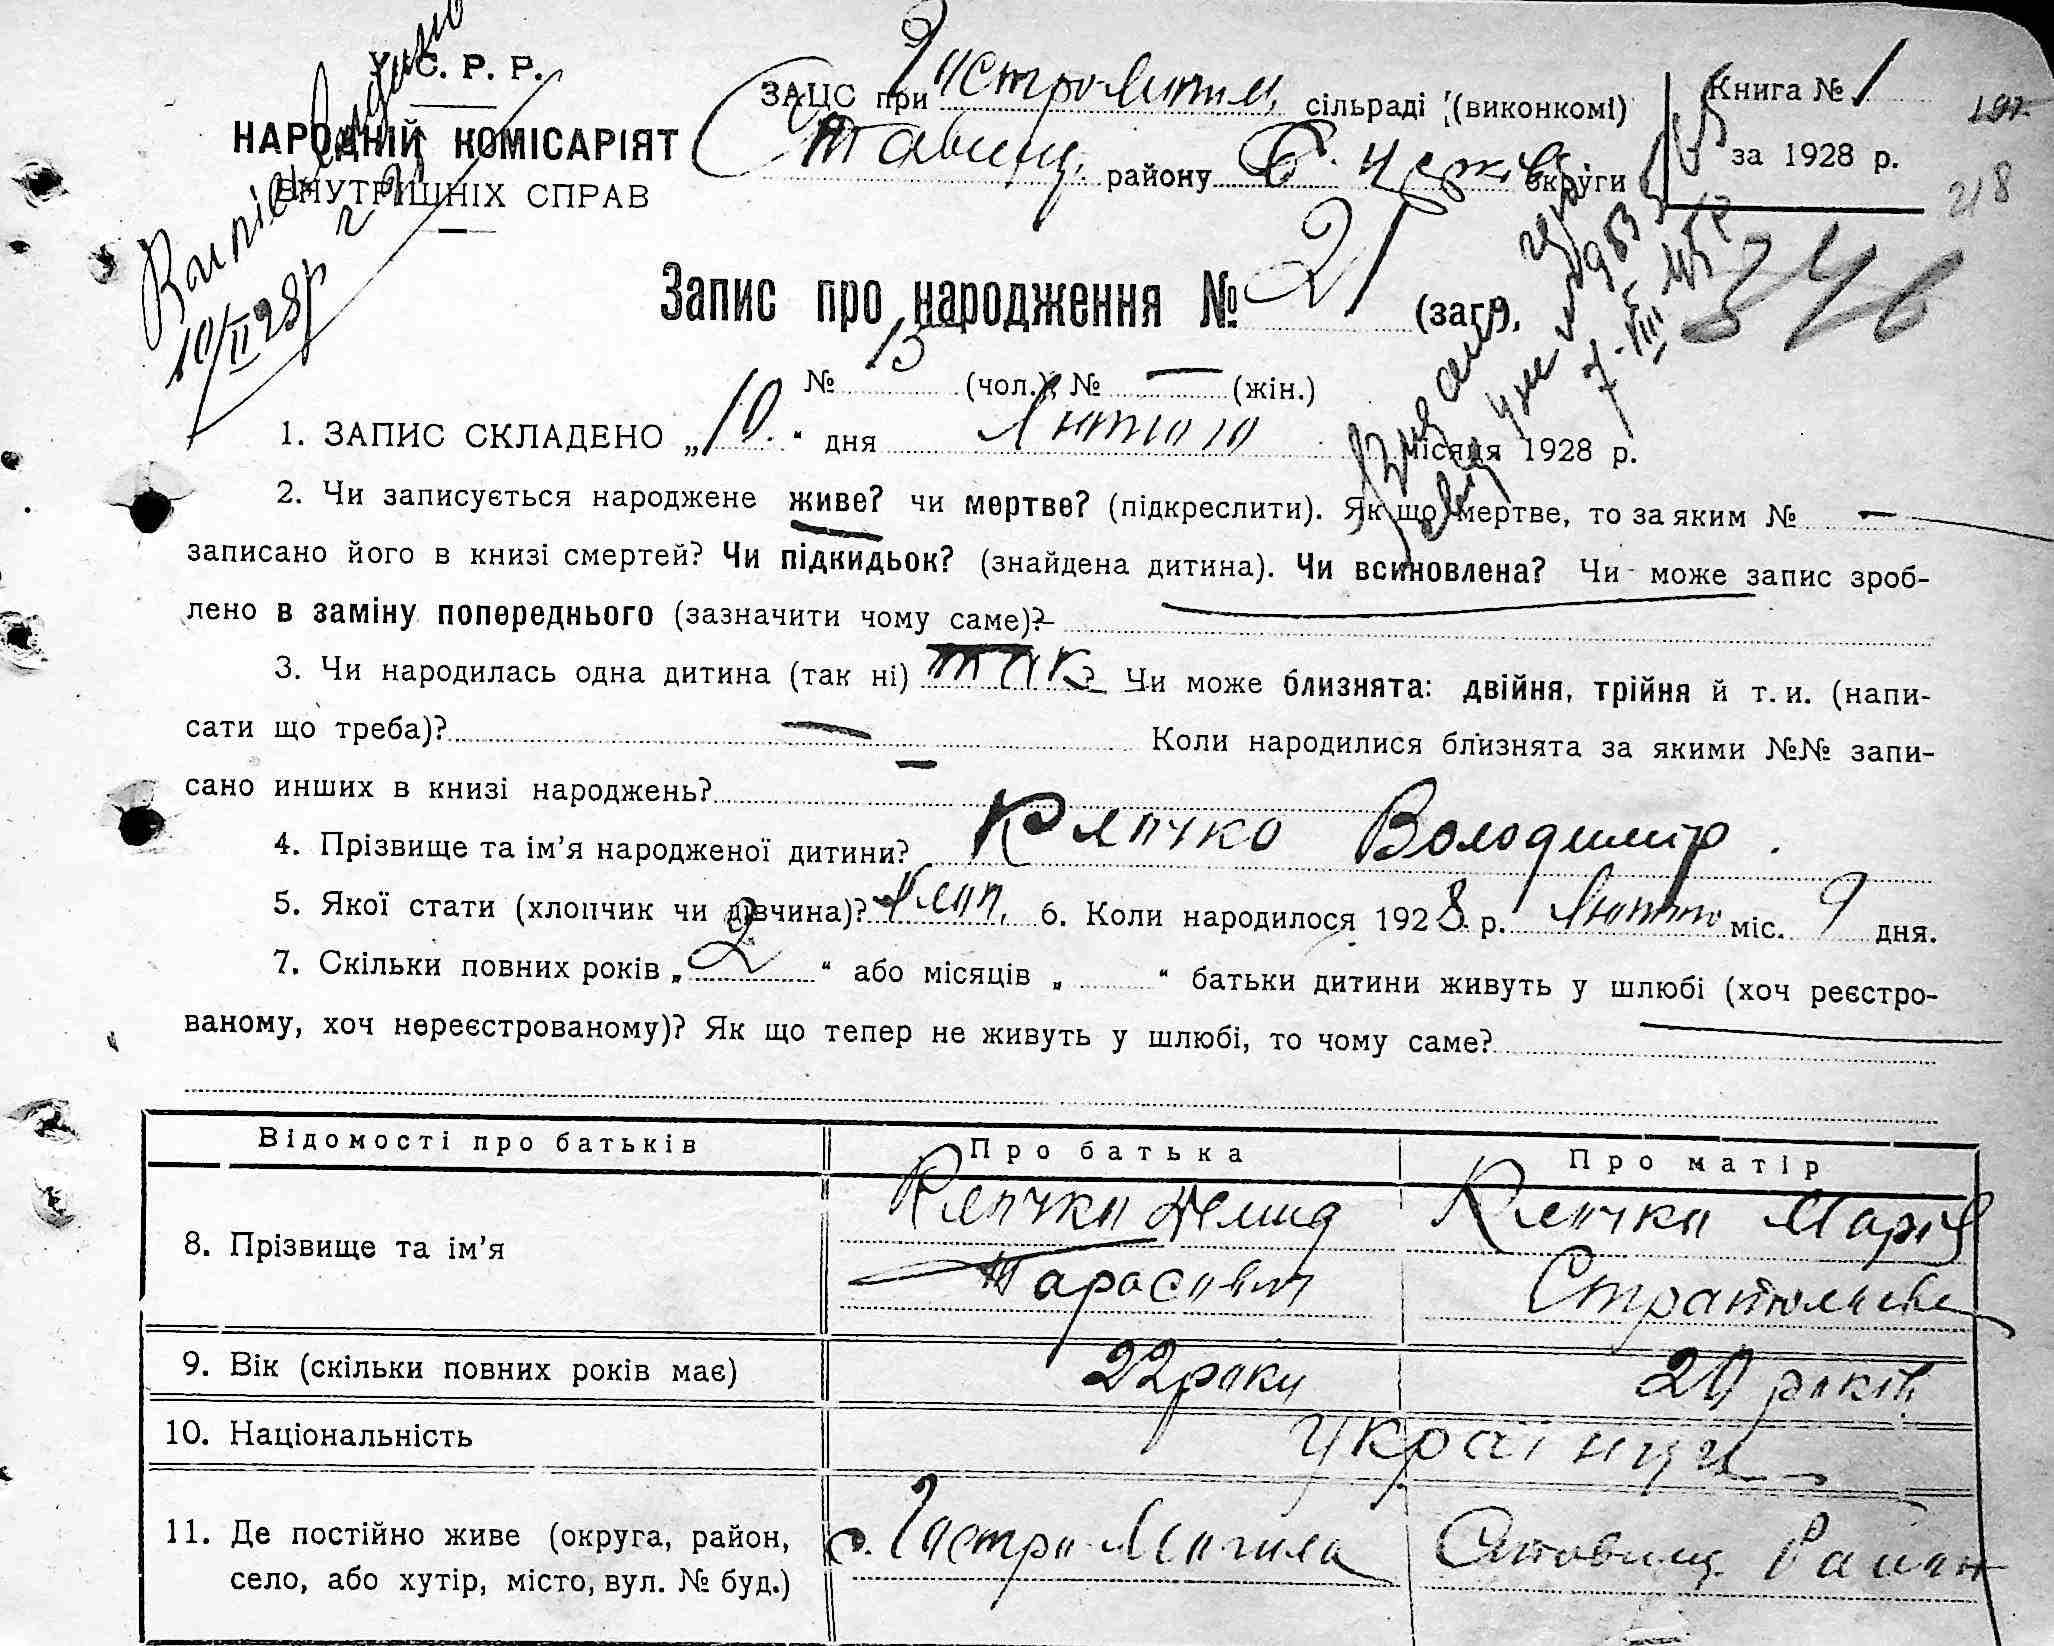 У. С. Р. Р.
НАРОДНІЙ КОМІСАРІЯТ
ВНУТРІШНІХ СПРАВ
ЗАЦС при Гостро-Могил. сільраді (виконкомі)
Ставищ. району Б. Церків округи
Книга № 1
за 1928 р.
218
346
10/II 28р
Запис про народження № 21 (заг.),
№ 15 (чол.); № — (жін.)
7-VIII-45р
1. ЗАПИС СКЛАДЕНО „10.“ дня Лютого місяця 1928 р.
2. Чи записується народжене живе? чи мертве? (підкреслити). Як що мертве, то за яким № —
записано його в книзі смертей? Чи підкидьок? (знайдена дитина). Чи всиновлена? Чи може запис зроб-
лено в заміну попереднього (зазначити чому саме)?
3. Чи народилась одна дитина (так ні) так ? Чи може близнята: двійня, трійня й т. и. (напи-
сати що треба)? — Коли народилися близнята за якими №№ запи-
сано инших в книзі народжень? —
4. Прізвище та ім’я народженої дитини? Кляпчко Володимір.
5. Якої стати (хлопчик чи дівчина)? Хлоп. 6. Коли народилося 1928 р. Лютого міс. 9 дня.
7. Скільки повних років „ 2 “ або місяців „ “ батьки дитини живуть у шлюбі (хоч реєстро-
ваному, хоч нереєстрованому)? Як що тепер не живуть у шлюбі, то чому саме?
Відомості про батьків Про батька Про матір
8. Прізвище та ім’я Кляпчко Демид Кляпчко Марія
Тарасович
9. Вік (скільки повних років має) 22 роки 20 років
10. Національність Українці
11. Де постійно живе (округа, район, с. Гостра Могила Ставищ. Район
село, або хутір, місто, вул. № буд.)